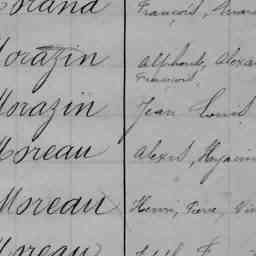 François,
Morazin Alphonse, Alexa
François
Morazin Jean Louis
Moreau Alexis, Benjamin
Moreau Henri, Pierre, Vi
Moreau